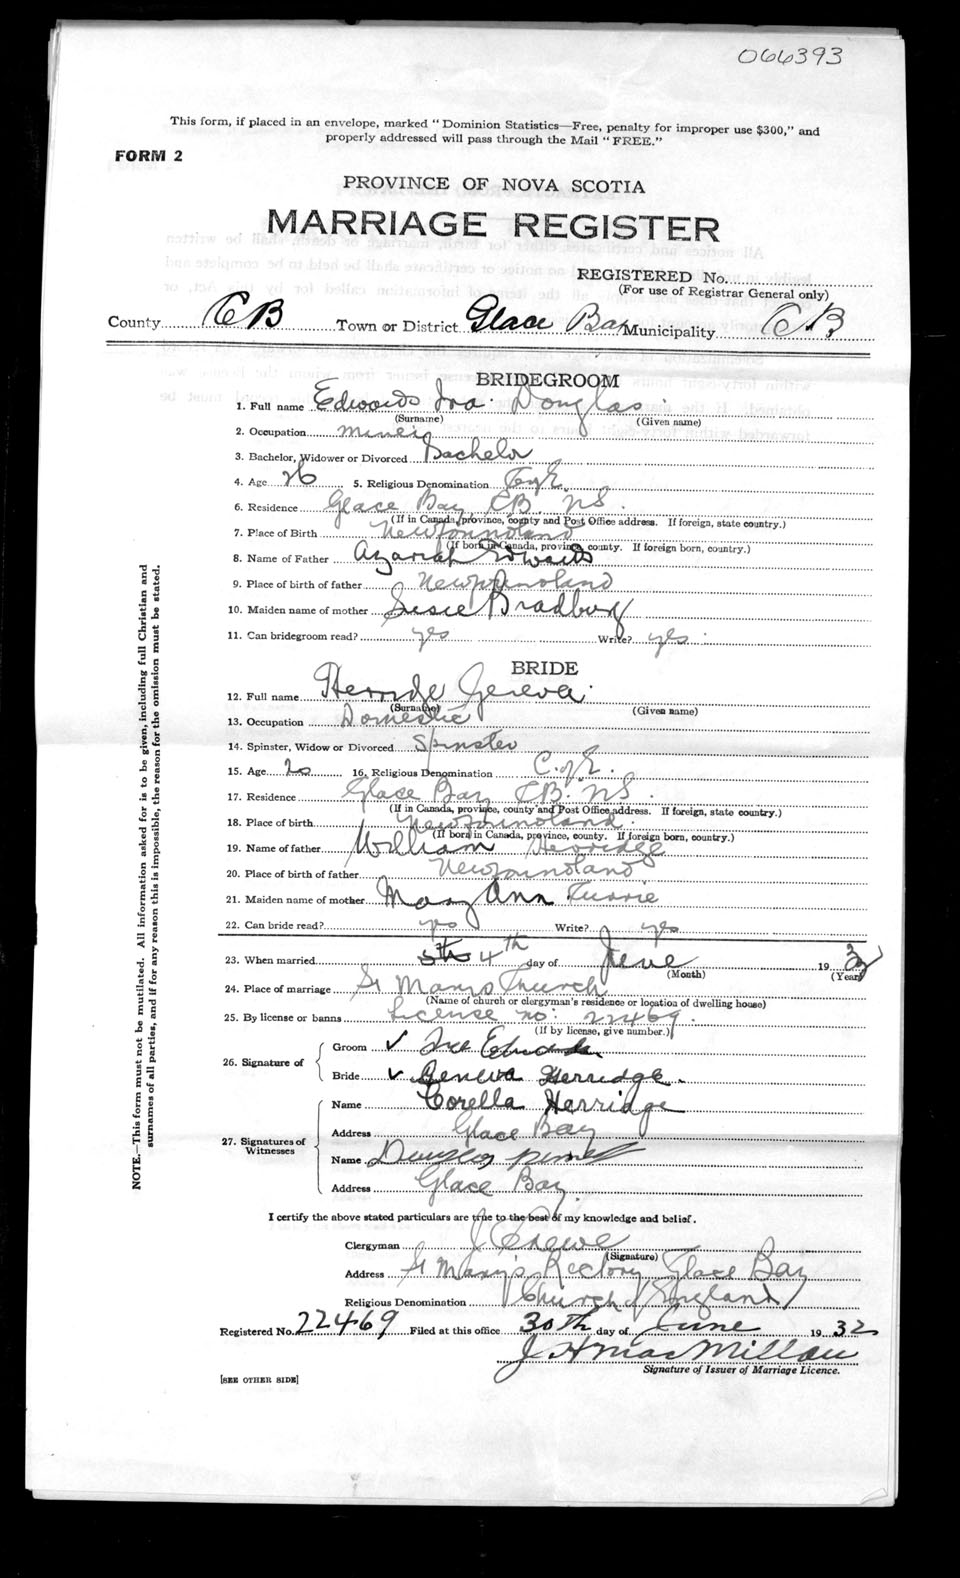 066393
This form, if placed in an envelope, marked "Dominion Statistics—Free, penalty for improper use $300," and
properly addressed will pass through the Mail "FREE."
FORM 2
PROVINCE OF NOVA SCOTIA
MARRIAGE REGISTER
REGISTERED No.
(For use of Registrar General only)
County CB Town or District Glace Bay Municipality C.B
BRIDEGROOM
1. Full name Edwards Ira Douglas
(Surname) (Given name)
2. Occupation miner
3. Bachelor, Widower or Divorced Bachelor
4. Age 26 5. Religious Denomination C of E.
6. Residence Glace Bay CB. NS.
(If in Canada, province, county and Post Office address. If foreign, state country.)
7. Place of Birth Newfoundland
(If born in Canada, province, county. If foreign born, country.)
8. Name of Father Azariah Edwards
9. Place of birth of father Newfoundland
10. Maiden name of mother Susie Bradbury
11. Can bridegroom read? yes Write? yes
BRIDE
12. Full name Herridge Geneva
(Surname) (Given name)
13. Occupation Domestic
14. Spinster, Widow or Divorced Spinster
15. Age 20 16. Religious Denomination C. of E.
17. Residence Glace Bay CB. NS.
(If in Canada, province, county and Post Office address. If foreign, state country.)
18. Place of birth Newfoundland
(If born in Canada, province, county. If foreign born, country.)
19. Name of father William Herridge
20. Place of birth of father Newfoundland
21. Maiden name of mother Mary Ann
22. Can bride read? yes Write? yes
23. When married 4th day of June 19
(Month) (Year)
24. Place of marriage St Mary's Church
(Name of church or clergyman's residence or location of dwelling house)
25. By license or banns License no: 22469.
(If by license, give number.)
26. Signature of
Groom ✓ Ira Edwards
Bride ✓ Geneva Herridge.
27. Signatures of
Witnesses
Name Corella Herridge
Address Glace Bay
Name Douglas
Address Glace Bay.
I certify the above stated particulars are true to the best of my knowledge and belief.
Clergyman J Crewe
(Signature)
Address St Mary's Rectory Glace Bay
Religious Denomination Church of England
Registered No. 22469 Filed at this office 30th day of June 19 32
J H MacMillan
Signature of Issuer of Marriage Licence.
[SEE OTHER SIDE]
NOTE.—This form must not be mutilated. All information asked for is to be given, including full Christian and
surnames of all parties, and if for any reason this is impossible, the reason for the omission must be stated.